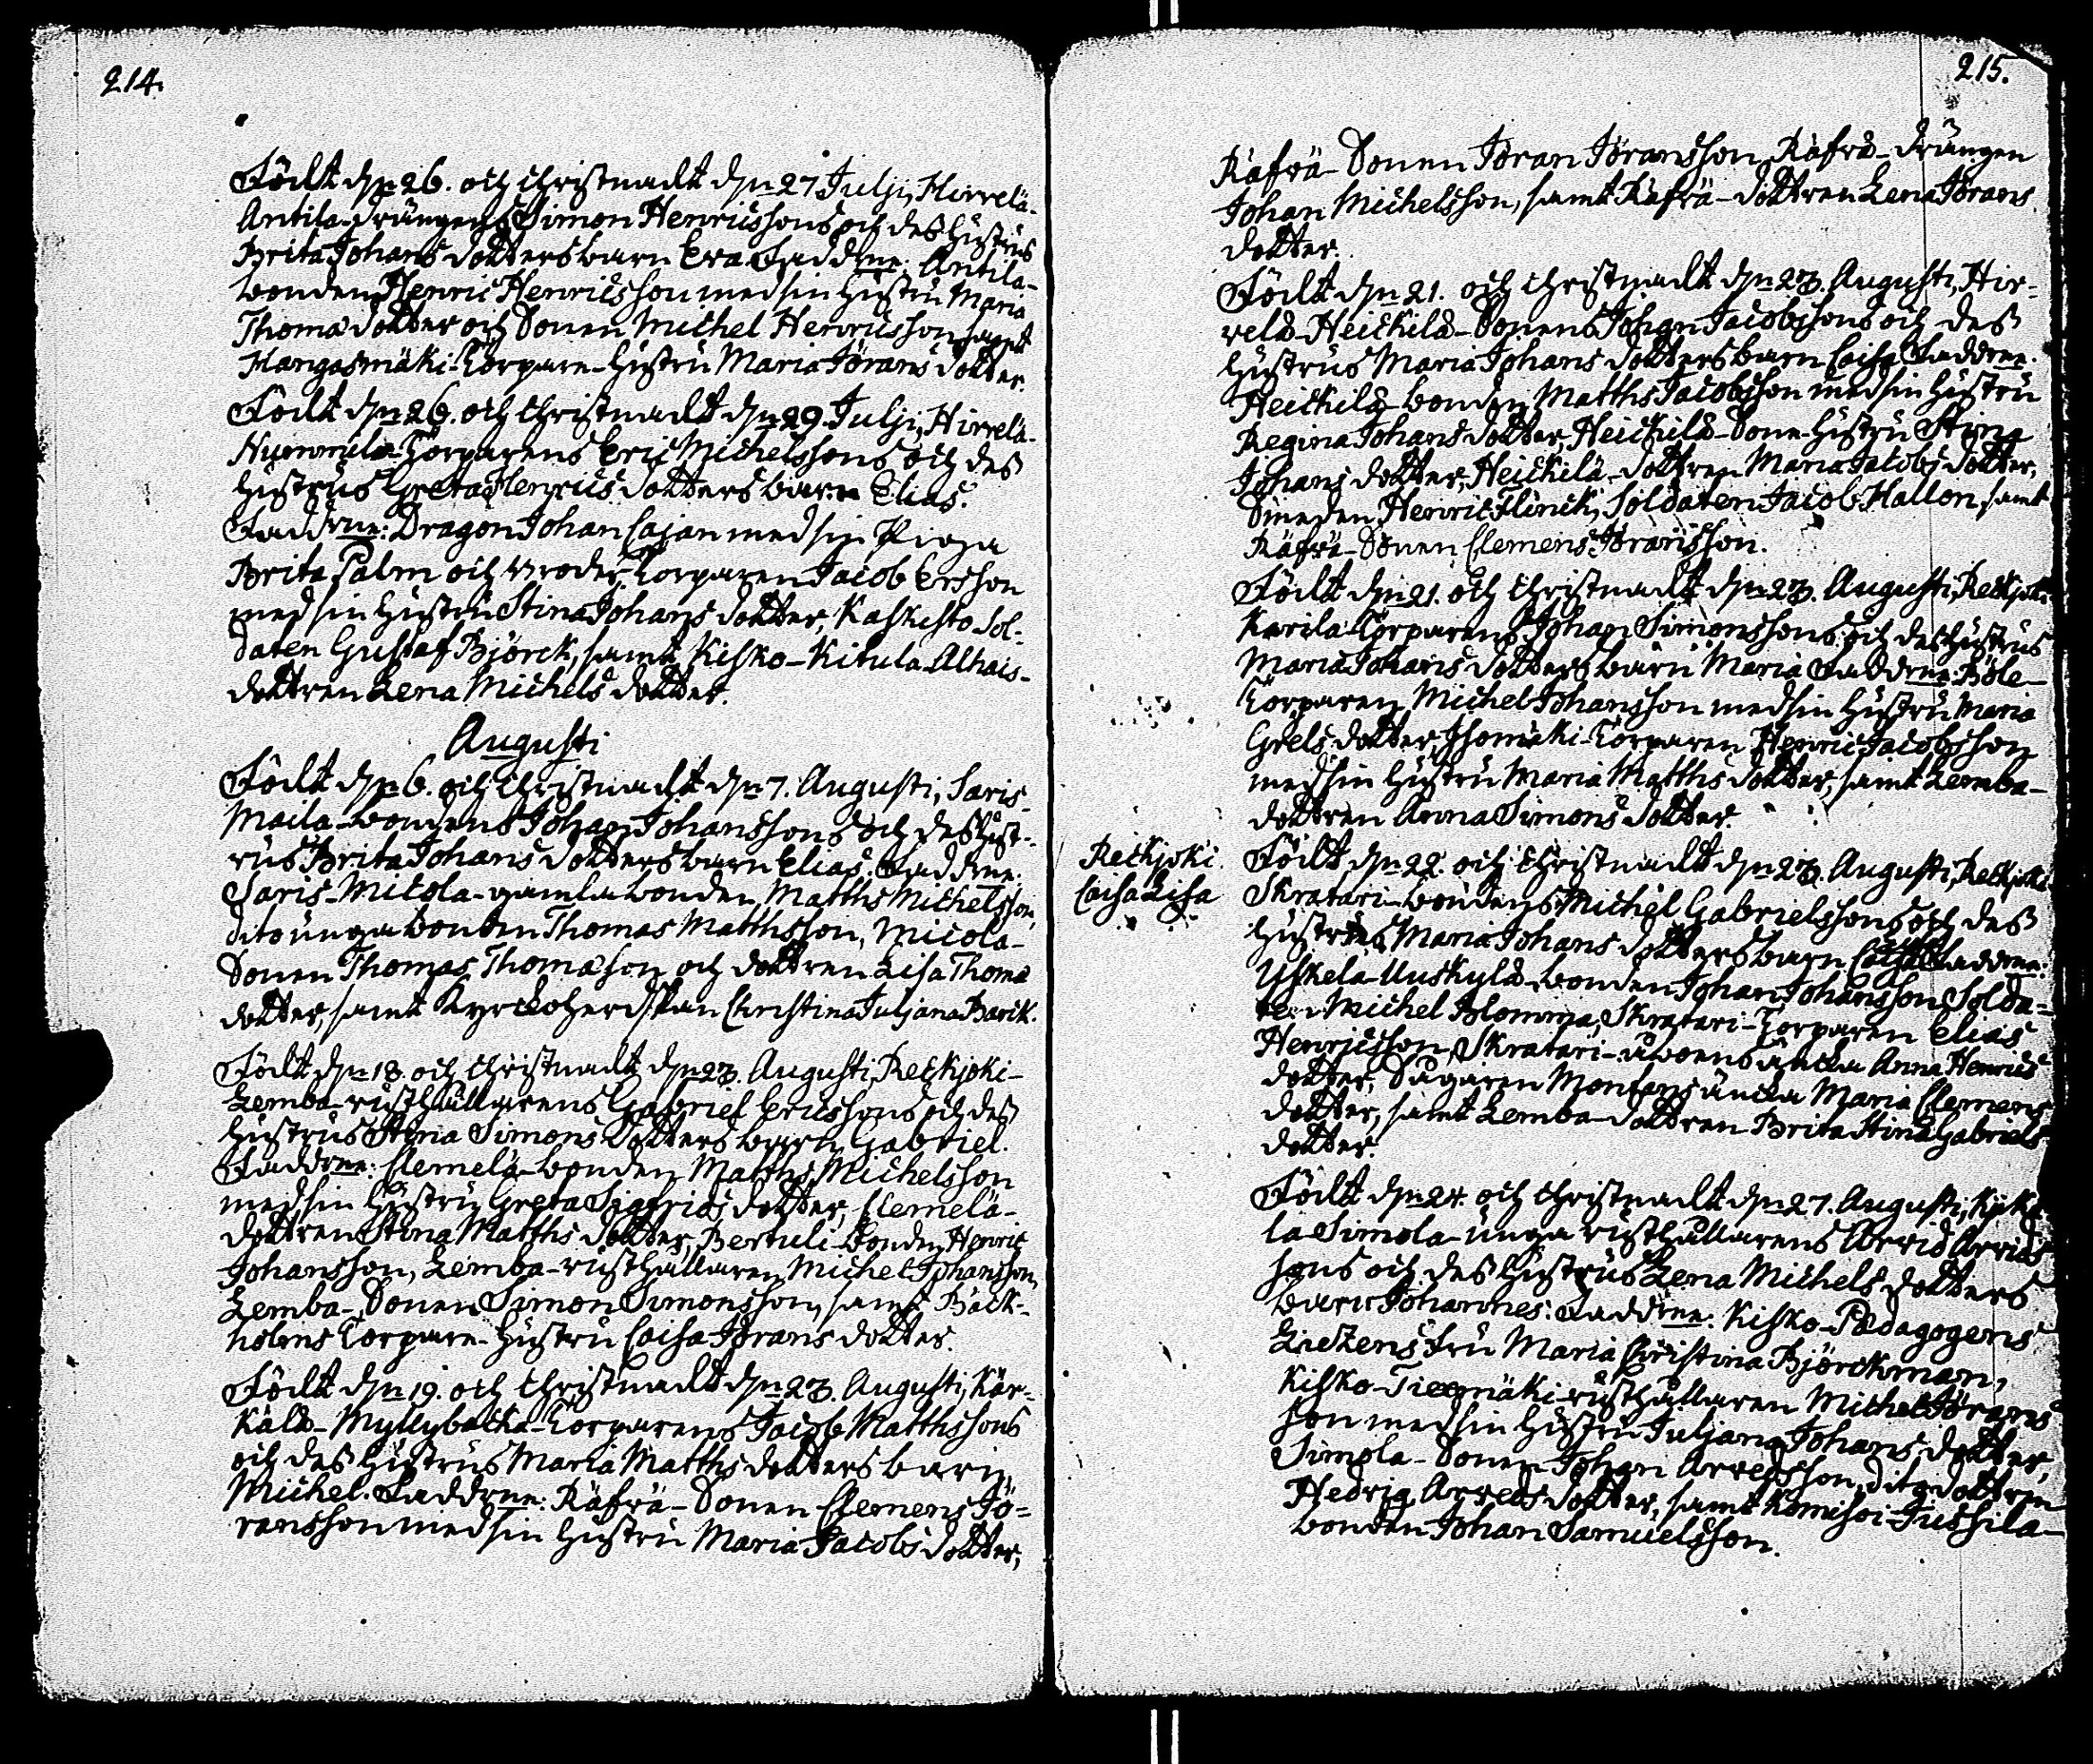 214.
Födt d. 26. och Christnadt d. 27 Julji, Hirrelä-
Antila-drängens Simon Henricssons och des hustrus
Brita Johans dotters barn Eva. Faddrne: Antila-
bonden Henric Henricsson med sin hustru Maria
Thomæ dotter och Sonen Michel Henricsson, samt
Kangasmäki-Torpare-hustru Maria Jörans dotter.
Födt d. 26. och Christnadt d. 29. Julji, Hirrelä-
Nummila-Torparens Eric Michelssons och des
hustrus Greta Henrics dotters barn Elias.
Faddrne: Dragon Johan Cajan med sin Piga
Brita Palm och broder, Torparen Jacob Ersson
med sin hustru Stina Johans dotter, Kaskisto Sol-
daten Gustaf Björck, samt Kisko-Kitula Alhais-
dottren Lena Michels dotter.
Augusti
Födt d. 6. och Christnadt d. 7. Augusti, Saris-
Maila-bondens Johan Johanssons och des hust-
rus Brita Johans dotters barn Elias. Faddrne:
Saris-Micola-gamla bonden Matths Michelsson,
dito unga bonden Thomas Matthsson, Micola-
Sonen Thomas Thomæson och dottren Lisa Thomæ
dotter, samt Kyrckoherdskan Christina Juljana Barck.
Födt d. 18. och Christnadt d. 23. Augusti, Reckjoki-
Lemba-rusthållarens Gabriel Ericssons och des
hustrus Stina Simons dotters barn Gabriel.
Faddrne: Clemelä-bonden Matths Michelsson
med sin hustru Greta Sigfrids dotter, Clemelä-
dottren Stina Matths dotter, Bertuli-bonden Henric
Johansson, Lemba-rusthållaren Michel Johansson,
Lemba-Sonen Simon Simonsson, samt Back-
holms Torpare-hustru Caisa Jörans dotter.
Födt d. 19. och Christnadt d. 23. Augusti, Kär-
kälä-Myllybacka-Torparens Jacob Matthssons
och des hustrus Maria Matths dotters barn
Michel. Faddrne: Räfvä-Sonen Clemens Jö-
ransson med sin hustru Maria Jacobs dotter,
215.
Räfvä-Sonen Jöran Jöransson, Räfvä-drängen
Johan Michelsson, samt Räfvä-dottren Lena Jörans
dotter.
Födt d. 21. och Christnadt d. 23. Augusti, Hir-
relä-Heickilä-Sonens Johan Jacobssons och des
hustrus Maria Johans dotters barn Caisa. Faddrne:
Heickilä-bonden Matths Jacobsson med sin hustru
Regina Johans dotter, Heickilä-Sone-hustru Stina
Johans dotter, Heickilä-dottren Maria Jacobs dotter,
Smeden Henric Flinck, Soldaten Jacob Hallon, samt
Räfvä-Sonen Clemens Jöransson.
Födt d. 21. och Christnadt d. 23. Augusti, Reckjoki-
Karila-Torparens Johan Simonssons och des hustrus
Maria Johans dotters barn Maria. Faddrne: Böle-
Torparen Michel Johansson med sin hustru Maria
Grels dotter, Isomäki-Torparen Henric Jacobsson
med sin hustru Maria Matths dotter, samt Lemba-
dottren Anna Simons dotter.
Reckjoki
Caisa Lisa
Födt d. 22. och Christnadt d. 23. Augusti, Reckjoki-
Skratari-bondens Michel Gabrielssons och des
hustrus Maria Johans dotters barn Caisa Faddrne:
Uskela-Uuskylä-bonden Johan Johansson, Solda-
ten Michel Blomma, Skratari-Torparen Elias
Henricsson, Skratari-åboens äncka Anna Henrics
dotter, Sågaren Montans äncka Maria Clemens
dotter, samt Lemba-dottren Brita Stina Gabriels
dotter.
Födt d. 24. och Christnadt d. 27. Augusti, Kjika-
la Simola-unga rusthållarens Arvid Arvids
sons och des hustrus Lena Michels dotters
barn Johannes. Faddrne: Kisko-Pædagogens
Lietzens Fru Maria Christina Björckman,
Kisko-Tiemäki-rusthållaren Michel Jörans
son med sin hustru Juljana Johans dotter,
Simola-Sonen Johan Arvedsson, dito dottren
Hedvig Arveds dotter, samt Komisoi-Jussila-
bonden Johan Samuelsson.